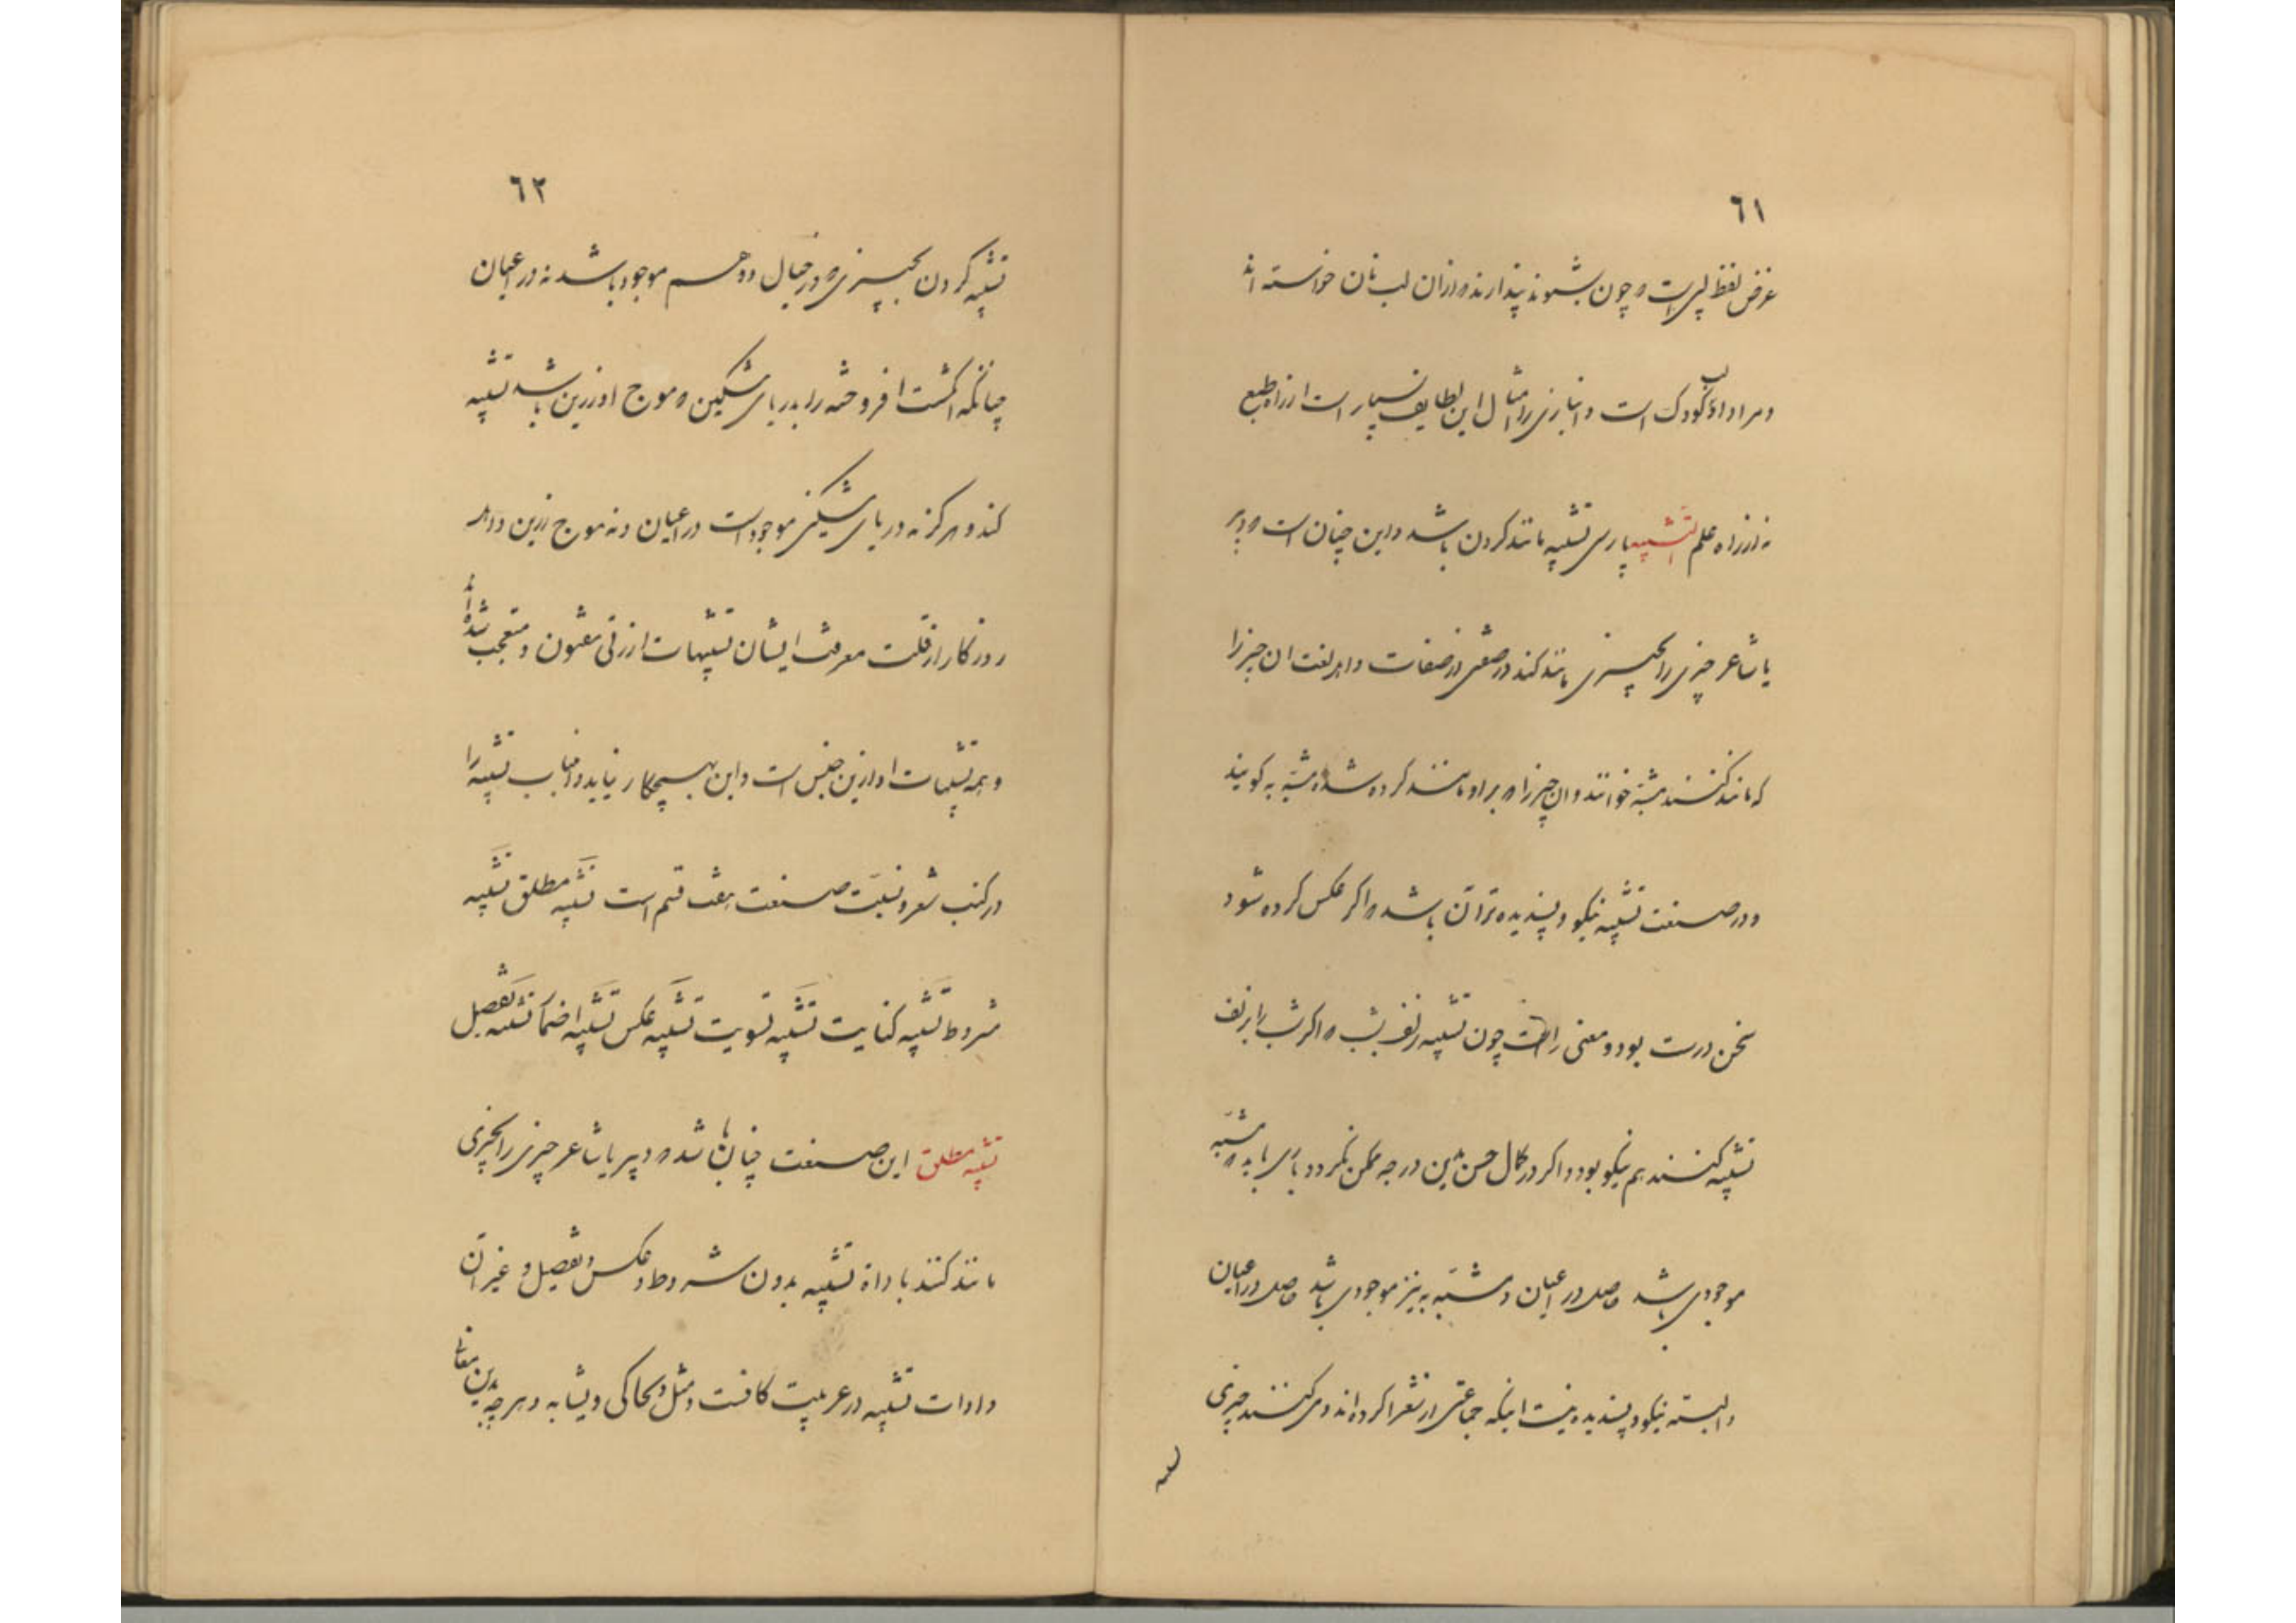 ٦١
غرض لفظ لبی است و چون بشنوند پندارند و ازان لب نان خواسته اند
و مراد او لب کودک است و انبازی را امثال این لطایف بسیار است از راه طبع
نه از راه علم التشبیه پارسی تشبیه مانند کردن باشد و این چنان است و دبیر
یا شاعر چیزی را بچیزی مانند کند در صفتی از صفات و اهل لغت آن چیز را
که مانند کنند مشبّه خوانند و ان چیز را و براو مانند کرده شد مشبّه به کویند
و در صنعت تشبیه نیکو و پسندیده تر آن باشد و اکر عکس کرده شود
سخن درست بود و معنی راست چون تشبیه زلف بشب و اکر شب را بزلف
تشبیه کنند هم نیکو بود و اکر در کمال حسن بدین درجه ممکن نکردد باری باید و مشبّه
موجودی باشد حاصل در اعیان و مشبّه به نیز موجودی باشد حاصل در اعیان
و البته نیکو و پسندیده نیست اینکه جماعتی از شعرا کرده اند و می کنند چیزی
٦٢
تشبیه کردن بچیزی و در خیال و وهم موجود باشد نه در اعیان
چنانکه انکشت افروخته را بدریای مشکین و موج او زرین باشد تشبیه
کند و هرکز نه دریای مشکین موجود است در اعیان و نه موج زرین و اهل
روزکار از قلت معرفت ایشان تشبیهات ازرقی مفتون و متعجب شده اند
و همه تشبیهات او ازین جنس است و این بهیچکار نیاید و اما تشبیه را
در کتب شعر و نسبت صنعت هفت قسم است تشبیه مطلق تشبیه
مشروط تشبیه کنایت تشبیه تسویت تشبیه عکس تشبیه اضمار تشبیه تفضیل
تشبیه مطلق این صنعت چنان باشد و دبیر یا شاعر چیزی را بچیزی
مانند کنند با داة تشبیه بدون شروط و عکس و تفضیل و غیر آن
و ادوات تشبیه در عربیت کافست و مثل و یحاکی و یشابه و هرچه بدین معانی